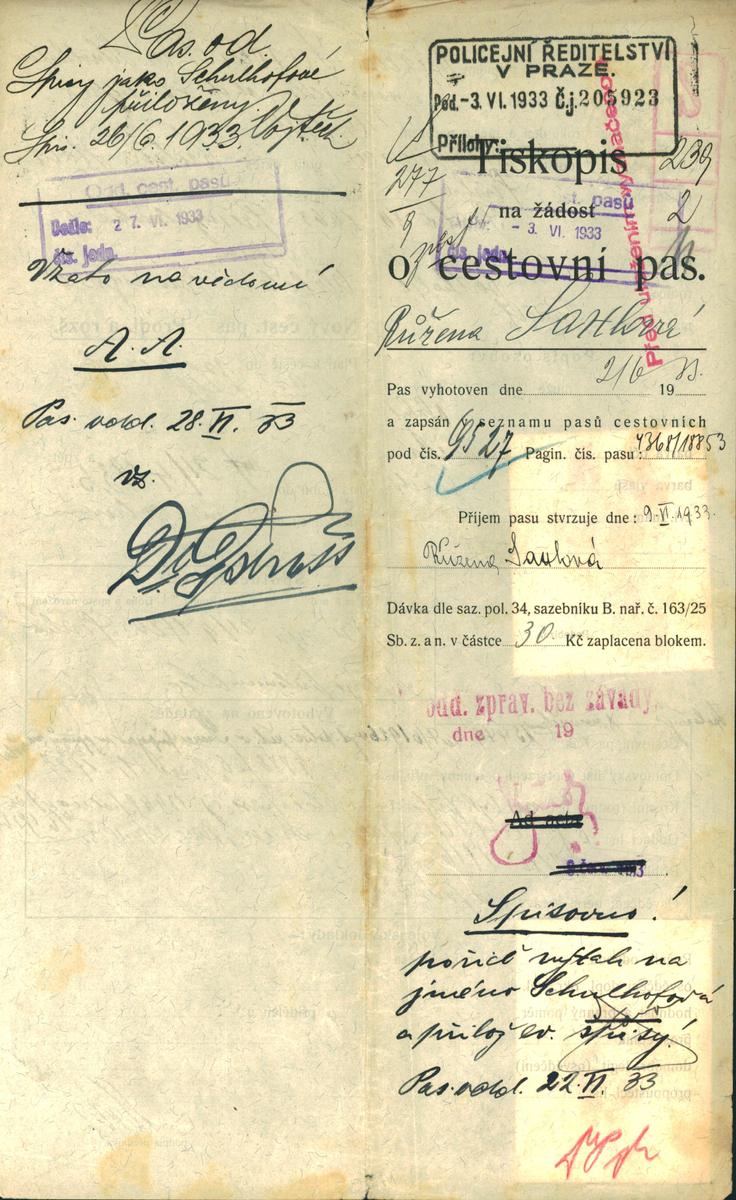 Pas. od.
Spisy jako Schulhofové
přiloženy.
Spis. 26/6. 1933. Vojtěch
Odd. cest. pasů
Došlo: 27. VI. 1933
čís. jedn.
Vzato na vědomí
A. A.
Pas. odd. 28. VI. 33
vz.
POLICEJNÍ ŘEDITELSTVÍ
V PRAZE.
Pod. -3. VI. 1933 Č.j. 205923
Přílohy:
277
9
239
2
Tiskopis
na žádost
o cestovní pas.
t. pasů
- 3. VI. 1933
čís. jedn.
Růžena Saxlová
Pas vyhotoven dne 2/6 19 33.
a zapsán v seznamu pasů cestovních
pod čís. 9527 Pagin. čís. pasu: 4368/18853
Příjem pasu stvrzuje dne: 9. VI. 1933.
Růžena Saxlová
Dávka dle saz. pol. 34, sazebníku B. nař. č. 163/25
Sb. z. a n. v částce 30 Kč zaplacena blokem.
odd. zprav. bez závady.
dne 19
Ad acta
Spisovno!
pořiď výtah na
jméno Schulhofová
a přilož ev. spisy!
Pas. odd. 22. VI. 33